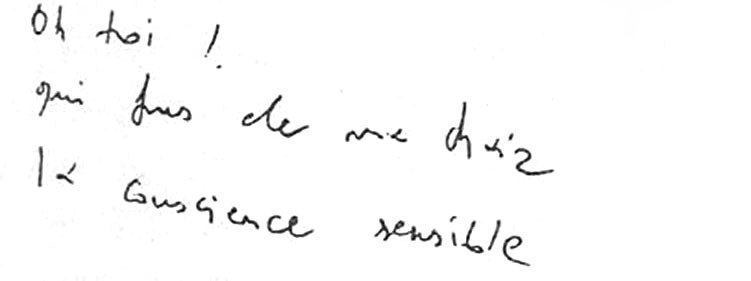 Oh toi !
qui fus de ma chair
la conscience sensible